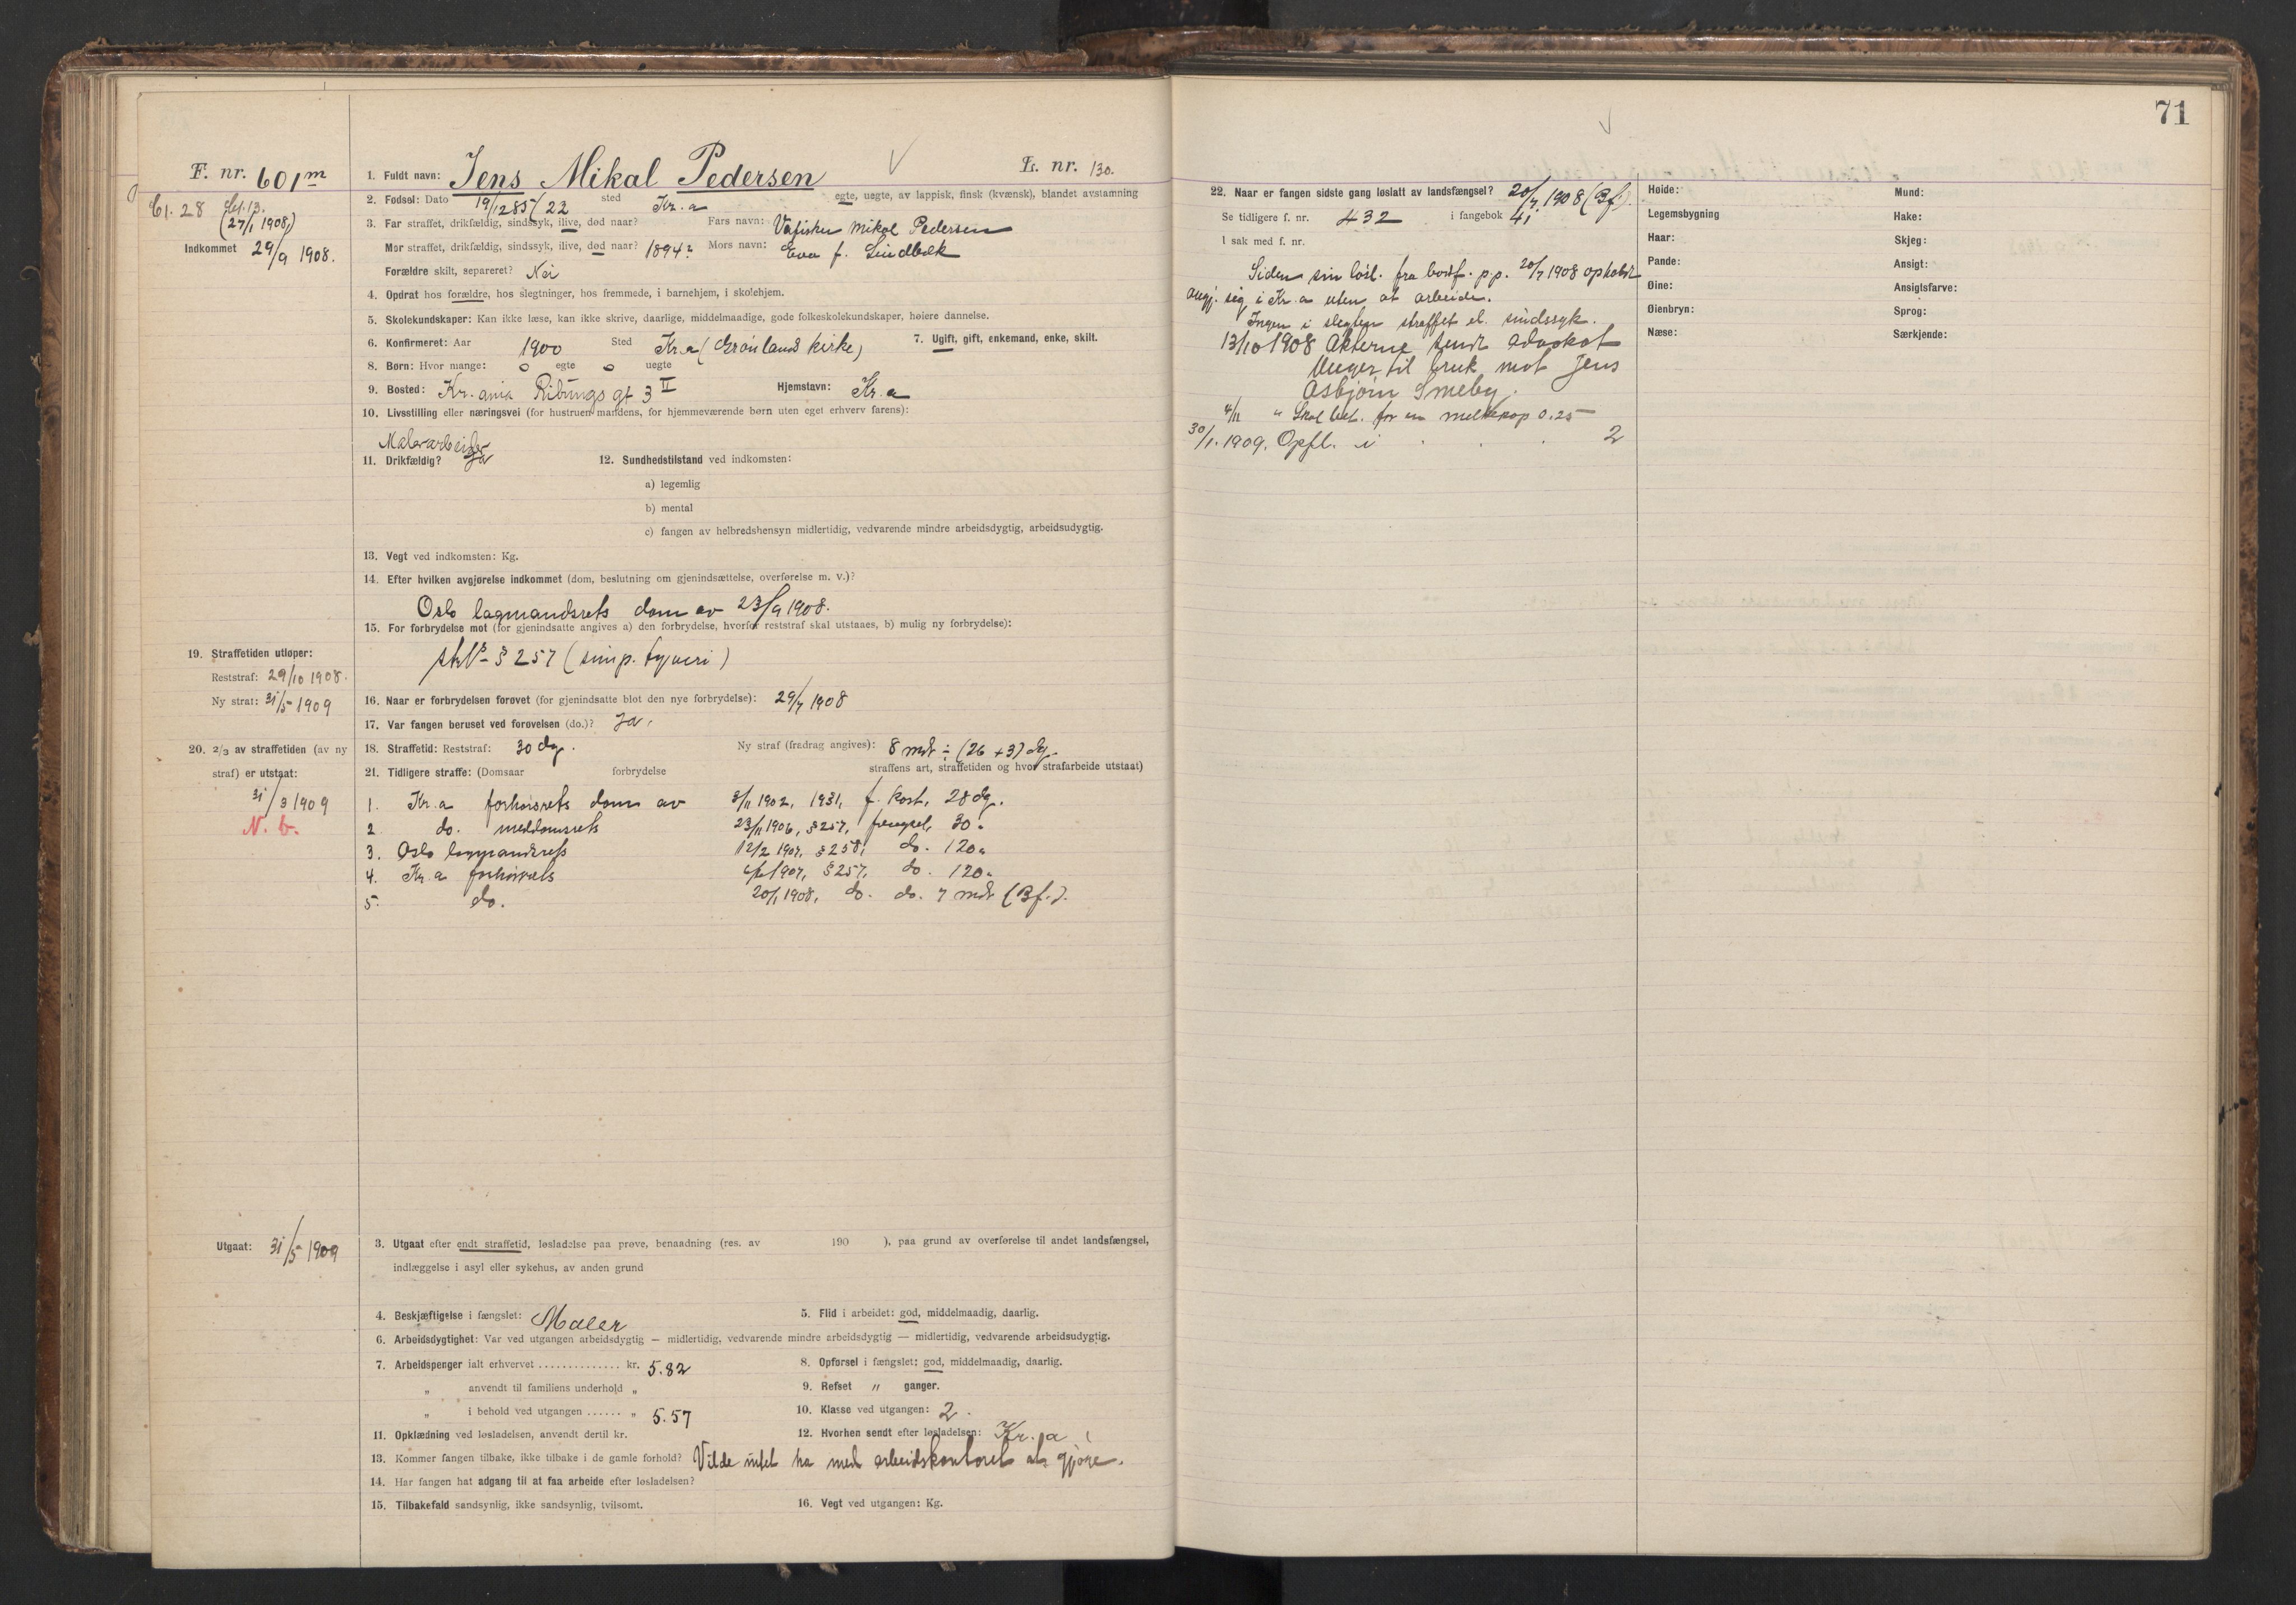 F. nr. 601 m
Cl. 28
(27/1 1908)
Indkommet 29/9 1908.
L. nr. 130.
1. Fuldt navn: Jens Mikal Pedersen
2. Fødsel: Dato 19/12 85 / 22 sted Kr.a egte, uegte, av lappisk, finsk (kvænsk), blandet avstamning
3. Far straffet, drikfældig, sindssyk, ilive, død naar? Fars navn: Mikal Pedersen
Mor straffet, drikfældig, sindssyk, ilive, død naar? 1894? Mors navn: Eva f. Lindbæk
Forældre skilt, separeret? Nei
4. Opdrat hos forældre, hos slegtninger, hos fremmede, i barnehjem, i skolehjem.
5. Skolekundskaper: Kan ikke læse, kan ikke skrive, daarlige, middelmaadige, gode folkeskolekundskaper, høiere dannelse.
6. Konfirmeret: Aar 1900 Sted Kr.a (Grønlands kirke) 7. Ugift, gift, enkemand, enke, skilt.
8. Børn: Hvor mange: 0 egte 0 uegte
9. Bosted: Kr.ania Ribungs gt 3 II Hjemstavn: Kr.a
10. Livsstilling eller næringsvei (for hustruen mandens, for hjemmeværende børn uten eget erhverv farens):
Malerarbeider
11. Drikfældig? Ja 12. Sundhedstilstand ved indkomsten:
a) legemlig
b) mental
c) fangen av helbredshensyn midlertidig, vedvarende mindre arbeidsdygtig, arbeidsudygtig.
13. Vegt ved indkomsten: Kg.
14. Efter hvilken avgjørelse indkommet (dom, beslutning om gjenindsættelse, overførelse m. v.)?
Oslo lagmandsrets dom av 23/9 1908.
15. For forbrydelse mot (for gjenindsatte angives a) den forbrydelse, hvorfor reststraf skal utstaaes, b) mulig ny forbrydelse):
§ 257 (simp. tyveri)
19. Straffetiden utløper:
Reststraf: 29/10 1908.
Ny straf: 31/5 1909
16. Naar er forbrydelsen forøvet (for gjenindsatte blot den nye forbrydelse): 29/7 1908
17. Var fangen beruset ved forøvelsen (do.)? Ja.
20. 2/3 av straffetiden (av ny straf) er utstaat:
31/3 1909
N. b.
18. Straffetid: Reststraf: 30 dg. Ny straf (fradrag angives): 8 mdr ÷ (26 + 3) dg.
21. Tidligere straffe: (Domsaar forbrydelse straffens art, straffetiden og hvor strafarbeide utstaat)
1. Kr.a forhørsrets dom av 3/11 1902, 1931, f. kost, 28 dg.
2. do. meddomsrets 23/11 1906, § 257, fængsel, 30 "
3. Oslo lagmandsrets 12/2 1907, § 258, do. 120 "
4. Kr.a forhørsrets 1907, § 257, do. 120 "
5. do. 20/1 1908, do. do. 7 mdr (Bf.).
Utgaat: 31/5 1909
3. Utgaat efter endt straffetid, løsladelse paa prøve, benaadning (res. av 190 ), paa grund av overførelse til andet landsfængsel,
indlæggelse i asyl eller sykehus, av anden grund
4. Beskjæftigelse i fængslet: Maler 5. Flid i arbeidet: god, middelmaadig, daarlig.
6. Arbeidsdygtighet: Var ved utgangen arbeidsdygtig — midlertidig, vedvarende mindre arbeidsdygtig — midlertidig, vedvarende arbeidsudygtig.
7. Arbeidspenger ialt erhvervet .............. kr. 5.82 8. Opførsel i fængslet: god, middelmaadig, daarlig.
" anvendt til familiens underhold " 9. Refset " ganger.
" i behold ved utgangen ...... " 5.57 10. Klasse ved utgangen: 2.
11. Opklædning ved løsladelsen, anvendt dertil kr. 12. Hvorhen sendt efter løsladelsen: Kr.a
13. Kommer fangen tilbake, ikke tilbake i de gamle forhold? Vilde intet ha med arbeidskontoret at gjøre.
14. Har fangen hat adgang til at faa arbeide efter løsladelsen?
15. Tilbakefald sandsynlig, ikke sandsynlig, tvilsomt. 16. Vegt ved utgangen: Kg.
71
22. Naar er fangen sidste gang løslatt av landsfængsel? 20/7 1908 (Bf.)
Se tidligere f. nr. 432 i fangebok 41
I sak med f. nr.
Siden sin løsl. fra bodsf. p.p. 20/7 1908 opholdt
angj. sig i Kr.a uten at arbeide.
Ingen i slegten straffet el. sindssyk.
13/10 1908 Akterne sendt advokat
til bruk mot Jens
Asbjørn Smeby.
4/11 " Skal bet. for en melkekop 0.25
30/1. 1909. Opfl. i . . . 2
Høide: Mund:
Legemsbygning Hake:
Haar: Skjeg:
Pande: Ansigt:
Øine: Ansigtsfarve:
Øienbryn: Sprog:
Næse: Særkjende: